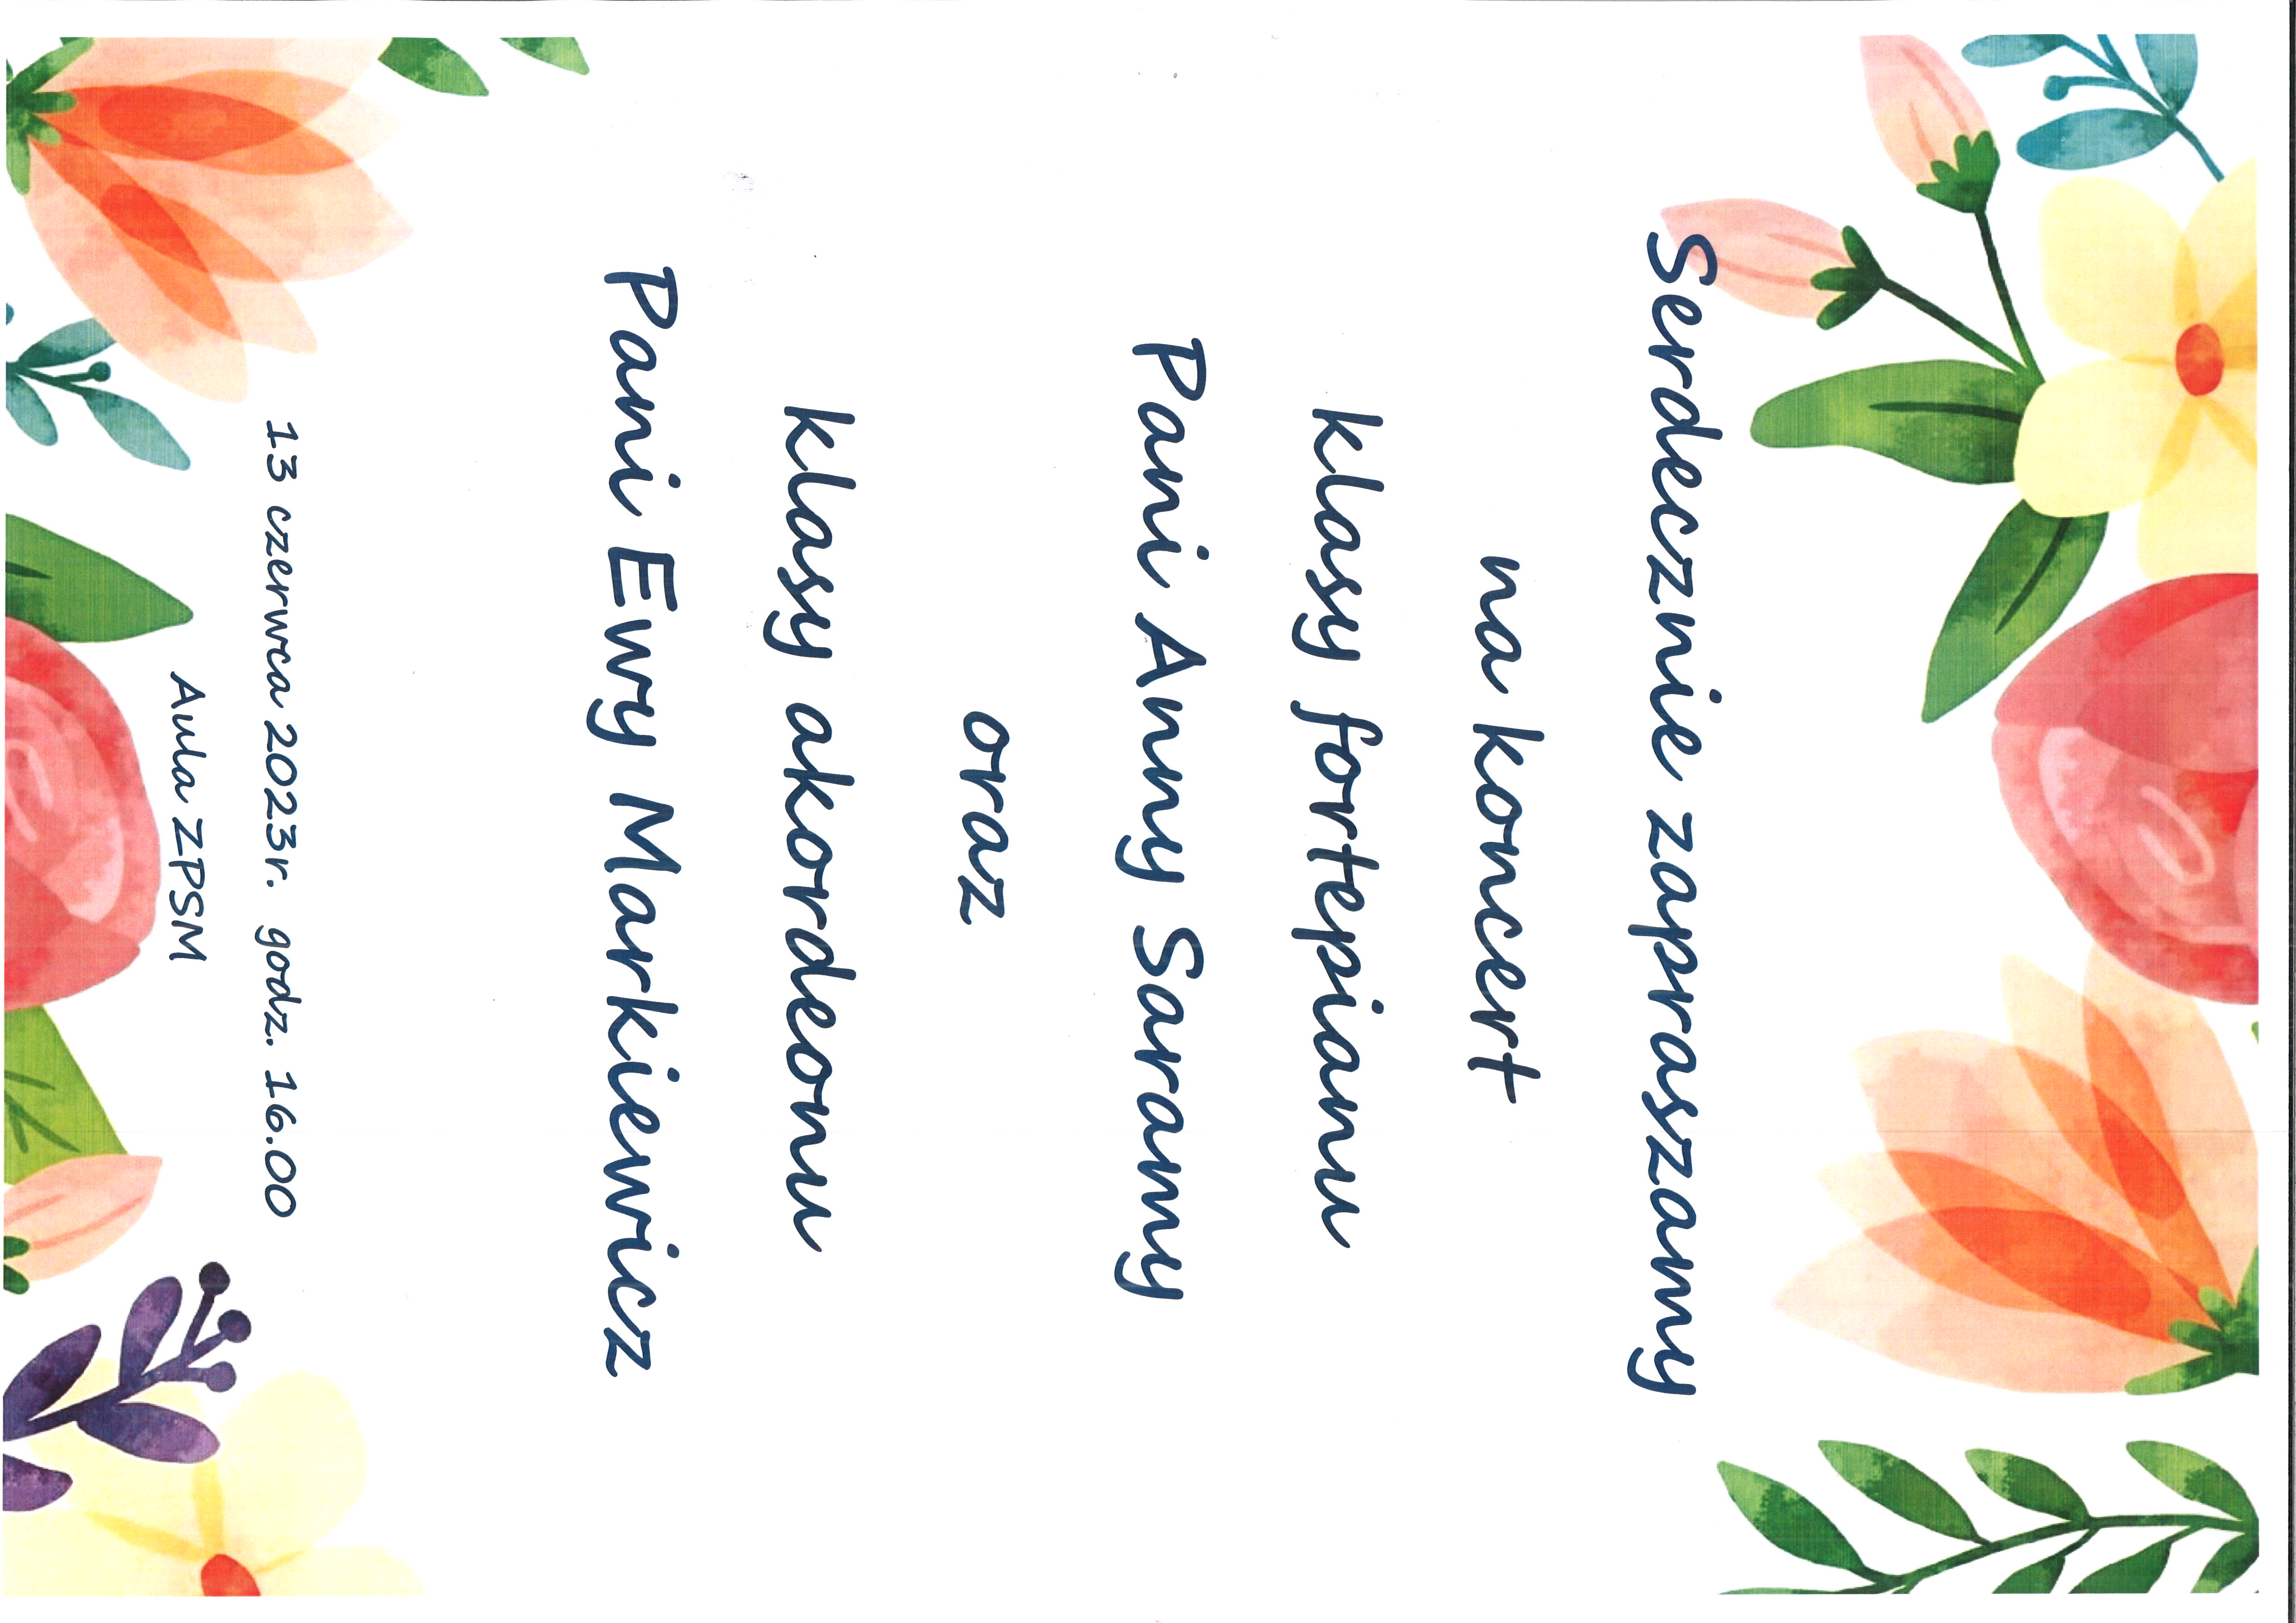 Serdecznie zapraszamy
na koncert
klasy fortepianu
Pani Anny Saramy
oraz
klasy akordeonu
Pani Ewy Markiewicz
13 czerwca 2023r. godz. 16.00
Aula ZPSM